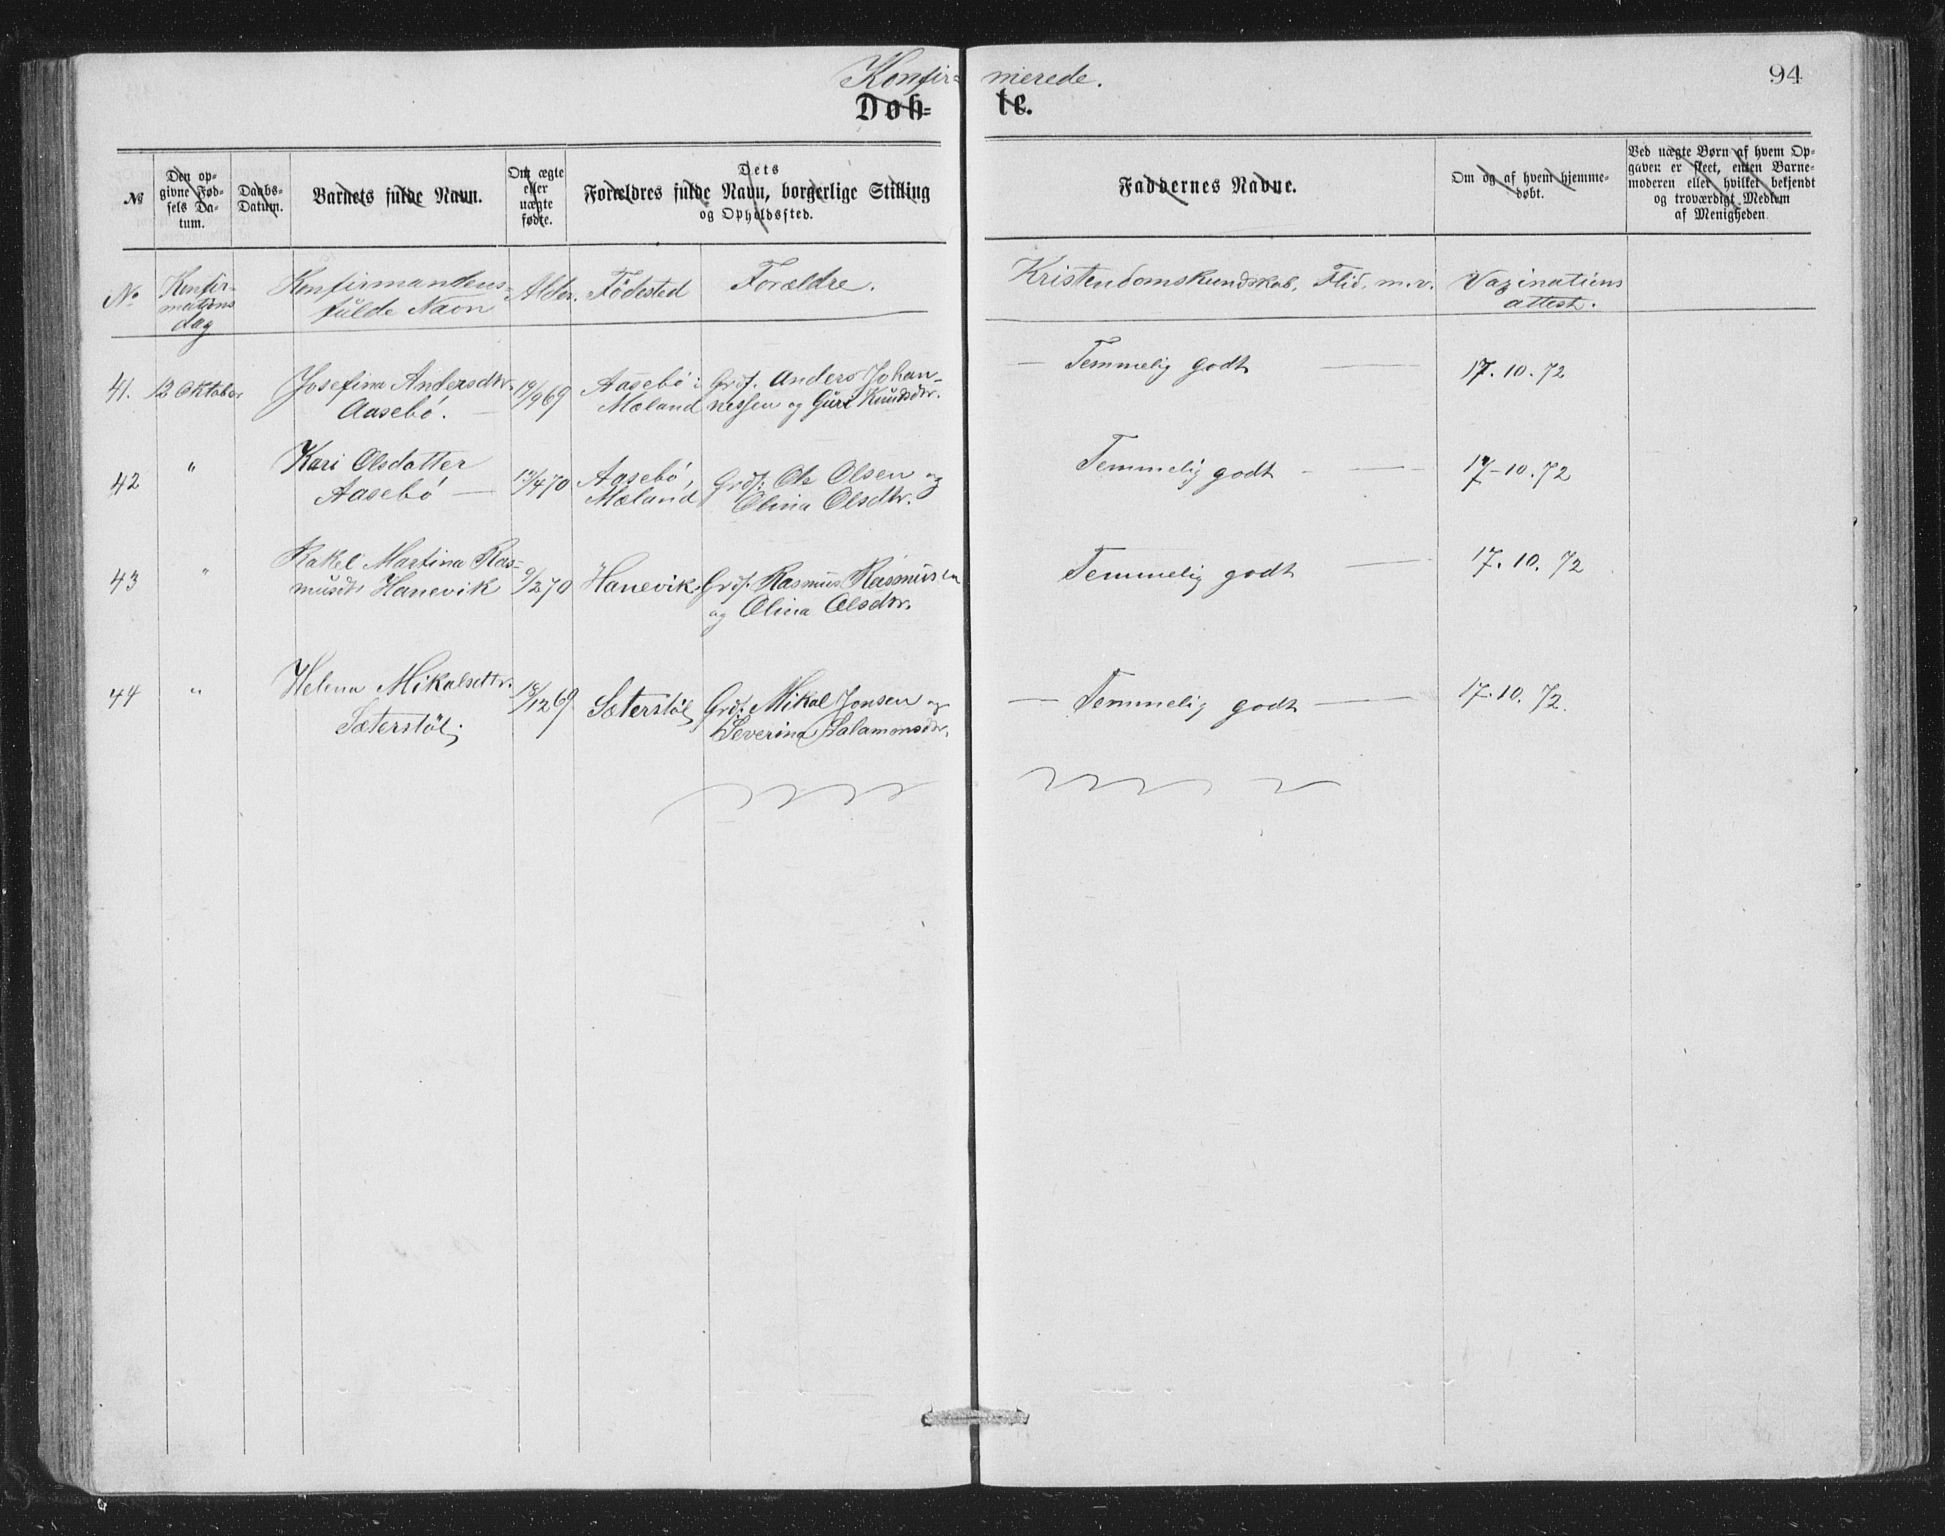 Konfir= merede.
94
Døb= te.
№
Den op=
givne Fød=
sels Da=
tum.
Daabs=
Datum.
Barnets fulde Navn.
Om ægte
eller
uægte
fødte.
Dets
Forældres fulde Navn, borgerlige Stilling
og Opholdssted.
Faddernes Navne.
Om og af hvem hjemme=
døbt.
Ved uægte Børn af hvem Op=
gaven er skeet, enten Barne=
moderen eller hvilket bekjendt
og troværdigt Medlem
af Menigheden.
No
Konfir-
mations
dag
Konfirmandens
fulde Navn
Alder.
Födested
Forældre.
Kristendomskundskab, Flid, m.v.
Vaxinations
attest.
41. 12 Oktober Josefina Andersdtr. 19/9 69 Aasebö i Grdf. Anders Johan-
Aasebö. — Mæland nessen og Guri Knudsdtr.
— Temmelig godt — 17.10.72
42 " Kari Olsdatter 13/4 70 Aasebö, Grdf. Ole Olsen og
Aasebö — Mæland Olina Olsdtr.
Temmelig godt - — 17-10.72
43 " Rakel Martina Ras= 9/2 70 Hanevik Grdf. Rasmus Rasmussen
musdtr Hanevik og Olina Olsdtr.
Temmelig godt — 17.10.72
44 " Helena Mikalsdtr. 18/12 69 Sæterstöl Grdf. Mikal Jonsen og
Sæterstöl. Severina Salamonsdtr.
— Temmelig godt — 17.10.72.